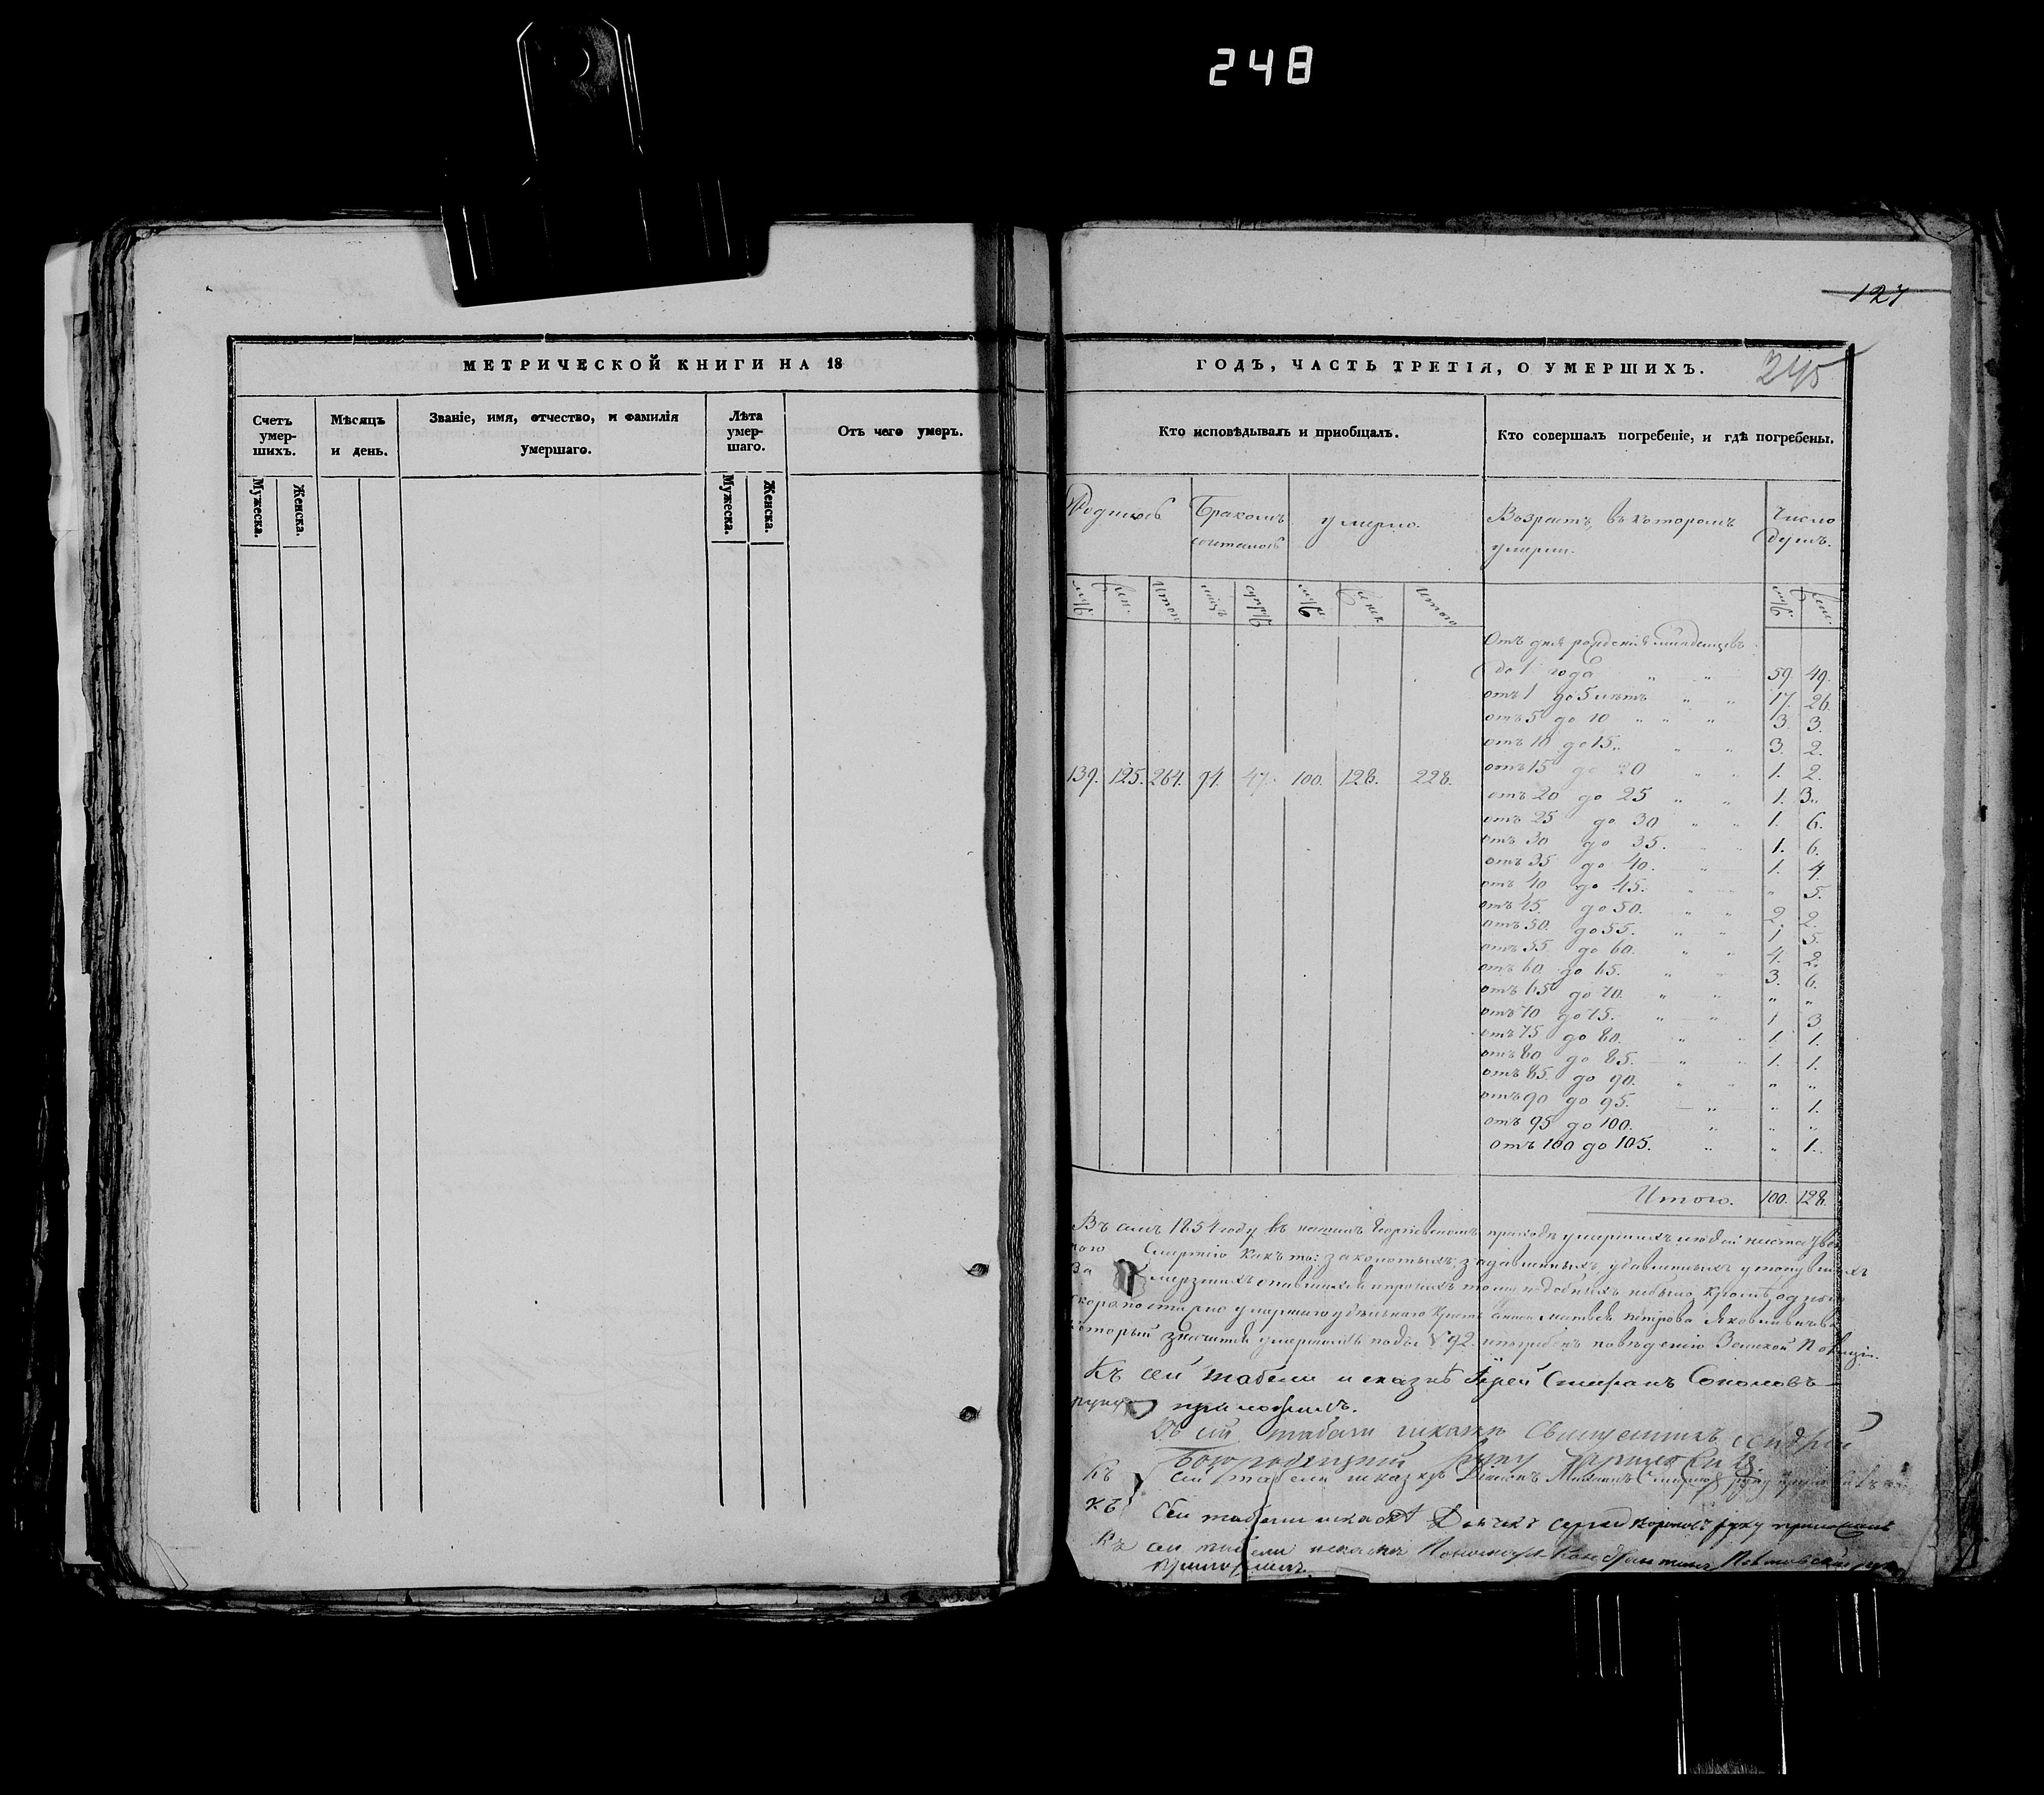 248
127
245
МЕТРИЧЕСКОЙ КНИГИ НА 18
Счетъ умер-шихъ.
Мѣсяцъ и день.
Званіе, имя, отчество, и фамилія умершаго.
Лѣта умер-шаго.
Отъ чего умеръ.
Мужеска.
Женска.
Мужеска.
Женска.
ГОДЪ, ЧАСТЬ ТРЕТІЯ, О УМЕРШИХЪ.
Кто исповѣдывалъ и пріобщалъ.
Кто совершалъ погребеніе, и гдѣ погребены.
Родилось
Бракомъ сочеталось
умерло.
Возрастъ, въ которомъ умерли.
Число душъ.
муж. жен. Итого муж. жен. Итого
муж. жен.
139. 125. 264. 94. 47. 100. 128. 228.
Отъ дня рожденія младенцевъ
до 1 года " " 59. 49.
отъ 1 до 5 лѣтъ " " 17. 26.
отъ 5 до 10 " " " 3. 3.
отъ 10 до 15. " " 3. 2.
отъ 15 до 20 " " 1. 2.
отъ 20 до 25 " " 1. 3.
отъ 25 до 30 " " 1. 6.
отъ 30 до 35. 1. 6.
отъ 35 до 40. 1. 4.
отъ 40 до 45. " 5.
отъ 45. до 50. " " 2. 2.
отъ 50. до 55. " " 1 5.
отъ 55. до 60. " " 4. 2.
отъ 60 до 65. " 3. 6.
отъ 65 до 70. " " " "
отъ 70 до 75. " " 1 3
отъ 75 до 80. " " 1. 1.
отъ 80 до 85. " 1. 1.
отъ 85. до 90. " " " "
отъ 90 до 95. " " 1.
отъ 95 до 100. " " "
отъ 100 до 105. " " 1.
Итого. 100. 128.
Въ семъ 1854 году въ нашемъ Георгіевскомъ приходѣ умершихъ людей
смертію какъ то: закопотыхъ: задавленныхъ, удавленныхъ утонувшихъ
За мерзшихъ опившихся и прочихъ тому подобныхъ небыло, кромѣ одного
скоропостижно умершаго Матвея Петрова
который значится умершимъ подъ № 92. погребенъ Земской Полиціи.
Къ сей табели и сказкѣ Іерей Стефанъ Соколовъ
руку приложилъ.
Къ сей табели и сказкѣ Священникъ Андрей
Богородицкій руку приложилъ
Къ сей табели и сказкѣ Діаконъ руку приложилъ
Къ сей табели и сказкѣ Дьячекъ Сергей руку приложилъ
Къ сей табели и сказкѣ Пономарь Константинъ руку
приложилъ.